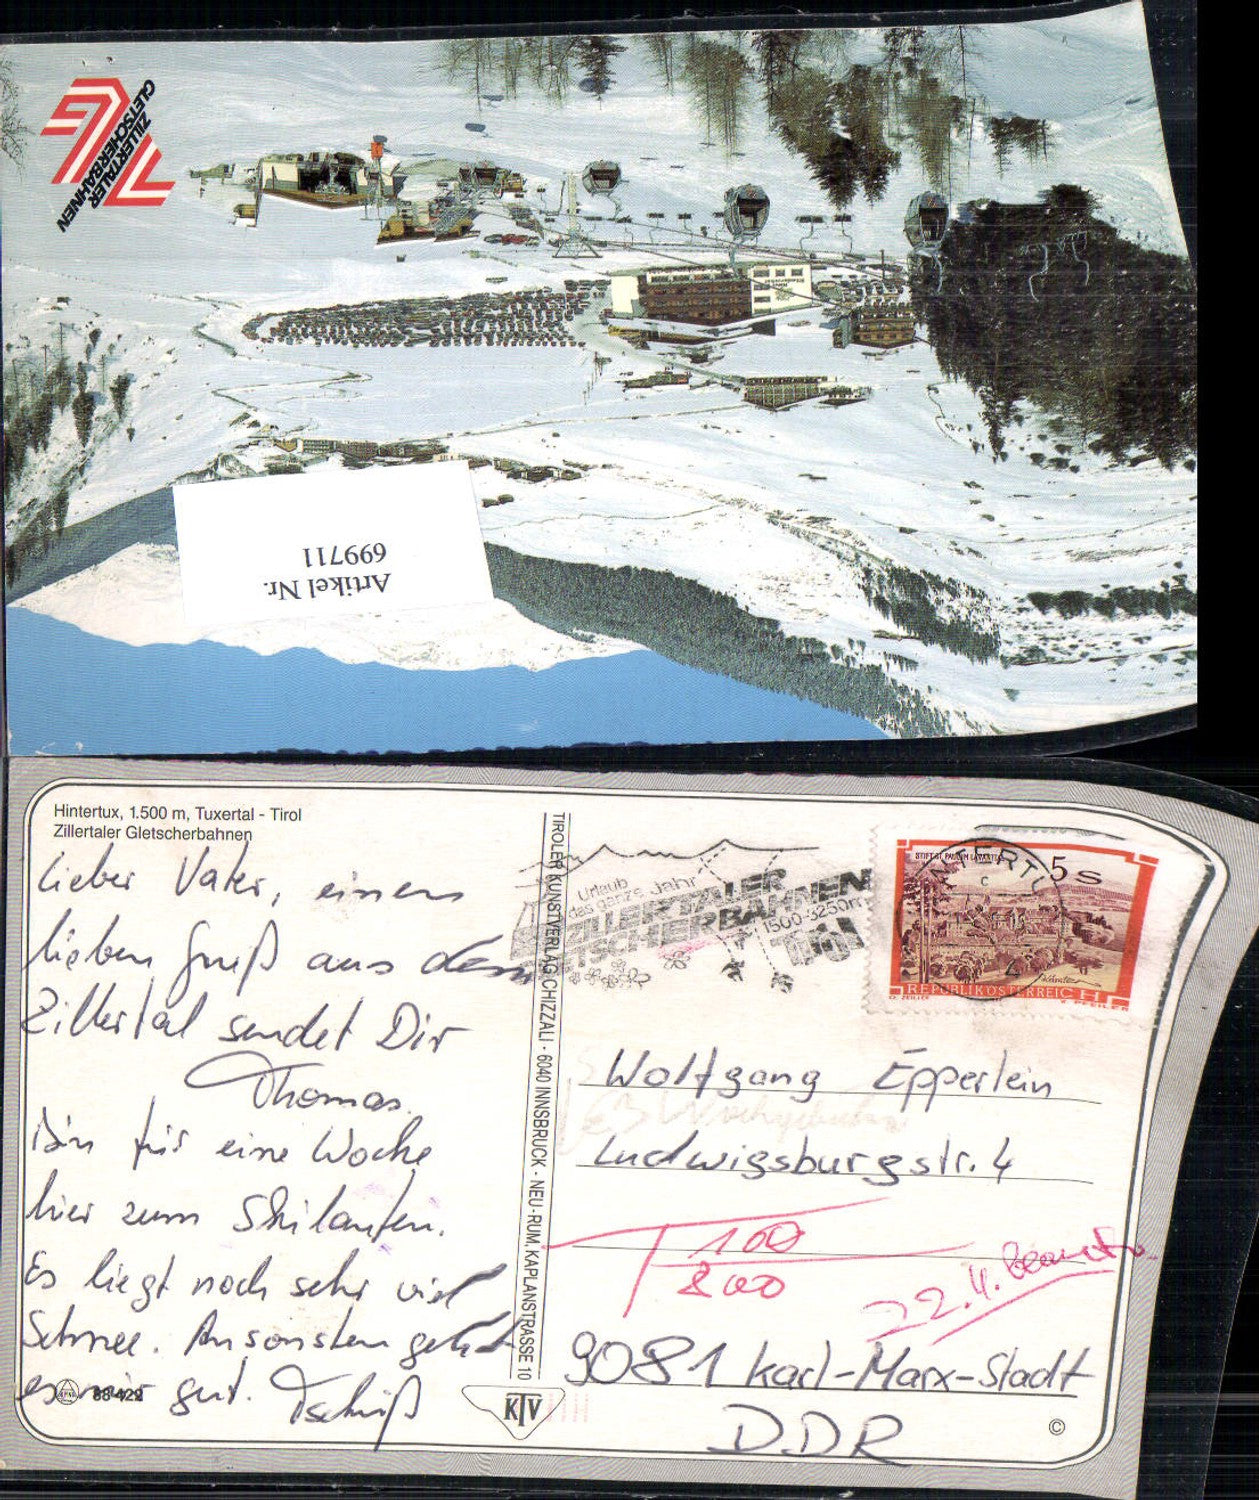 ZILLERTALER
GLETSCHERBAHNEN
Artikel Nr.
699711
Hintertux, 1.500 m, Tuxertal - Tirol
Zillertaler Gletscherbahnen
Lieber Vater, einen
lieben Gruß aus dem
Zillertal sendet Dir
Thomas.
Bin für eine Woche
hier zum Skilaufen.
Es liegt noch sehr viel
Schnee. Ansonsten geht
es mir gut. Tschüß
88422
TIROLER KUNSTVERLAG CHIZZALI · 6040 INNSBRUCK · NEU-RUM, KAPLANSTRASSE 10
KTV
Urlaub
das ganze Jahr
ZILLERTALER
GLETSCHERBAHNEN
1500-3250m
Tirol
HINTERTUX
STIFT ST. PAUL IM LAVANTTAL
5 S
REPUBLIK ÖSTERREICH
O. ZEILLER
Wolfgang Epperlein
Ludwigsburgstr. 4
T 100
800
22.4.
9081 Karl-Marx-Stadt
DDR
©